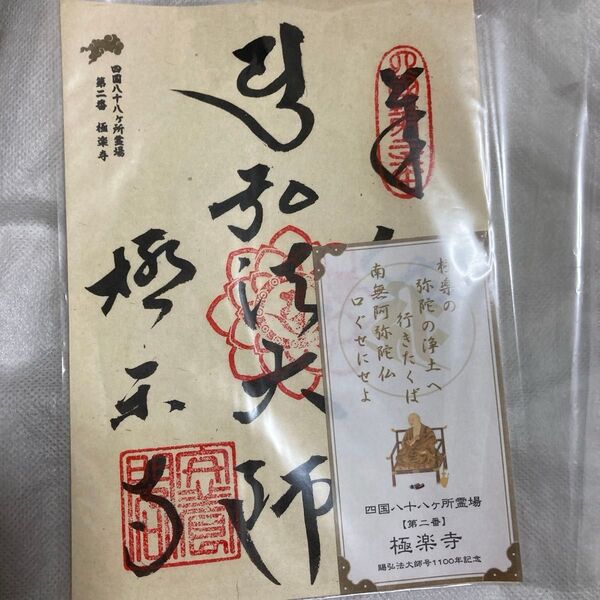 四国八十八ヶ所霊場
第二番 極楽寺
奉
弘法大師
極楽寺
極尊の
弥陀の浄土へ
行きたくば
南無阿弥陀仏
口ぐせにせよ
四国八十八ヶ所霊場
【第二番】
極楽寺
賜弘法大師号1100年記念